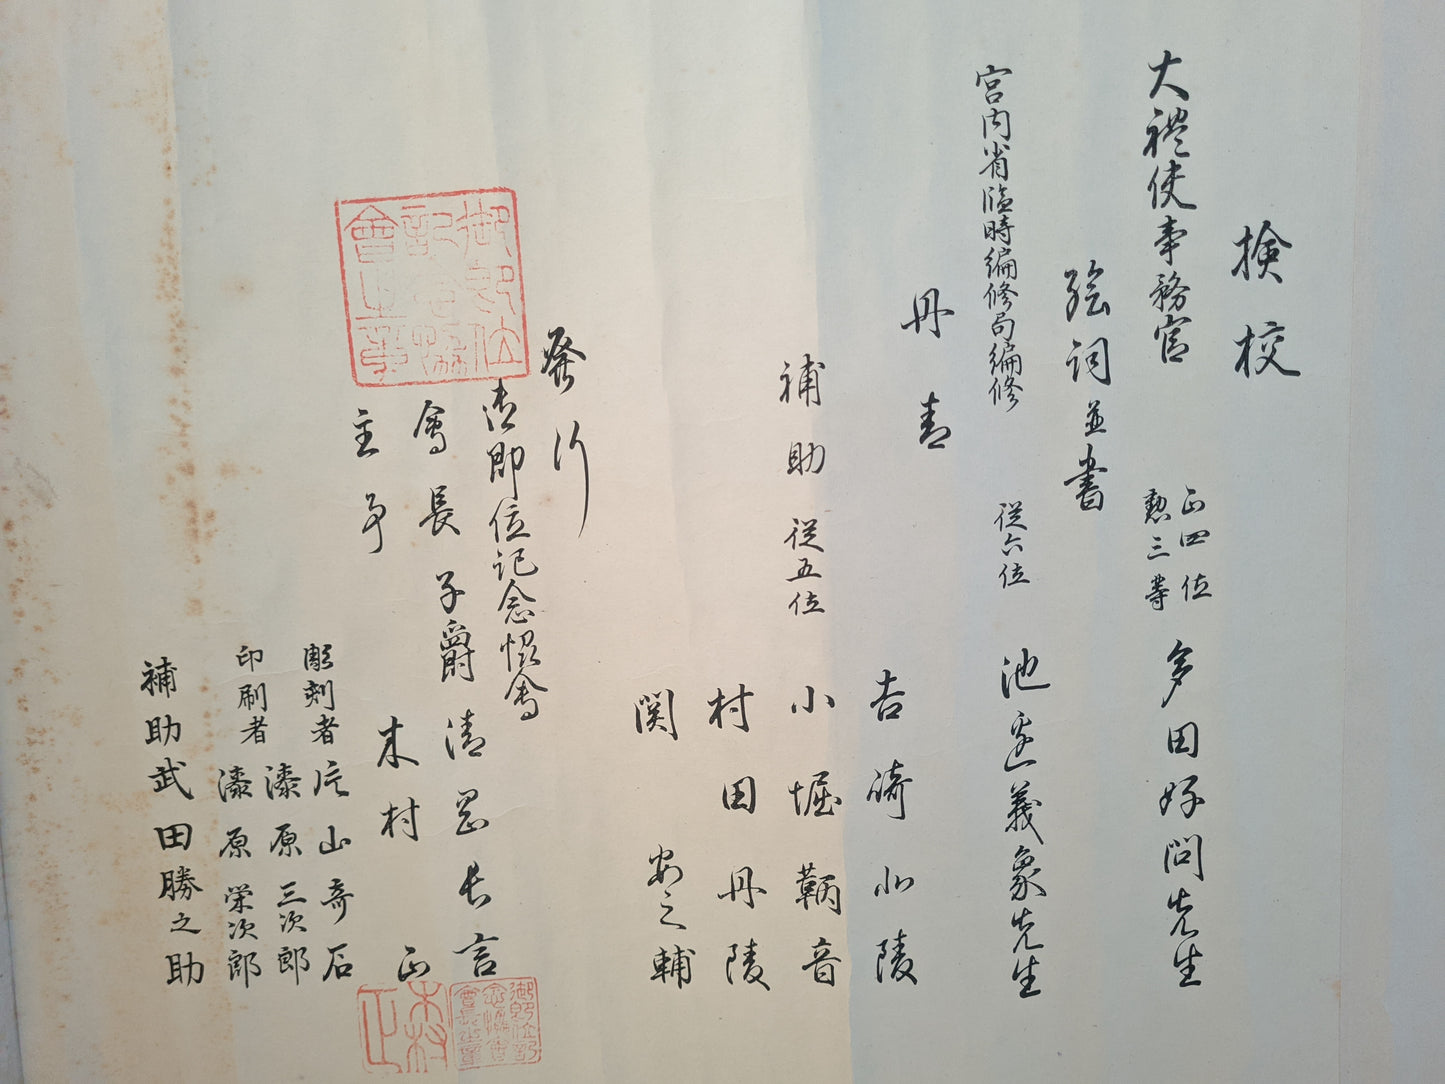 検校
大禮使事務官 正四位
勲三等 多田好問先生
絵詞並書
宮内省臨時編修局編修 従六位 池邊義象先生
丹青
吉崎北陵
補助 従五位 小堀鞆音
村田丹陵
関安之輔
発行
御即位記念協會
會長 子爵 清岡長言
主事 木村正
彫刻者 片山奇石
漆原三次郎
印刷者 漆原栄次郎
補助 武田勝之助
御即位
記念協
會之章
御即位記
念協會
會長之章
木村
正